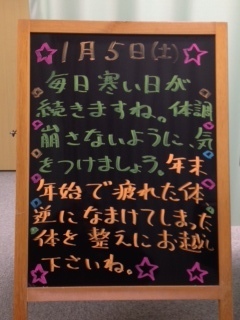 1月5日(土)
毎日寒い日が
続きますね。体調
崩さないように、気
をつけましょう。年末
年始で疲れた体、
逆になまけてしまった
体を整えにお越し
下さいね。